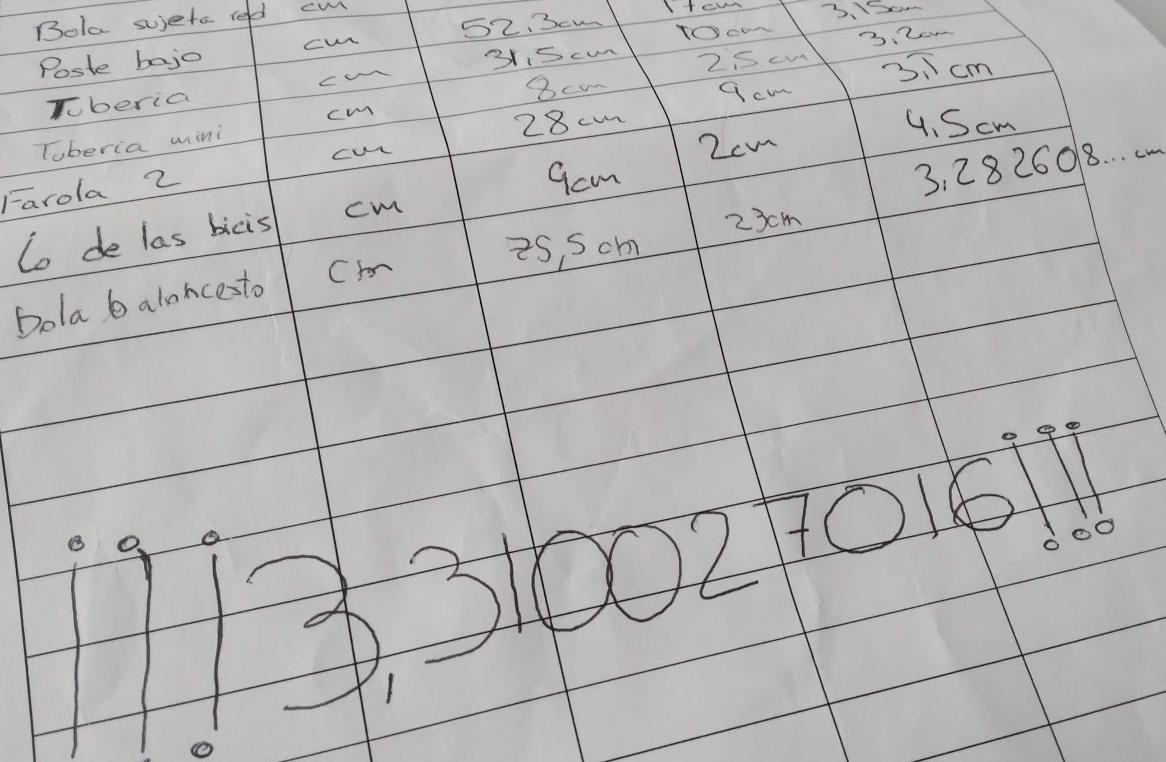 Bola sujeta red cm 52,3cm 17cm 3,15cm
Poste bajo cm 31,5cm 10cm 3,2cm
Tuberia cm 8cm 2,5cm 3,1cm
Tuberia mini cm 28cm 9cm
Farola 2 cm 9cm 2cm 4,5cm
Lo de las bicis cm 75,5cm 23cm 3,282608...cm
bola baloncesto cm
¡¡¡3,310027016!!!